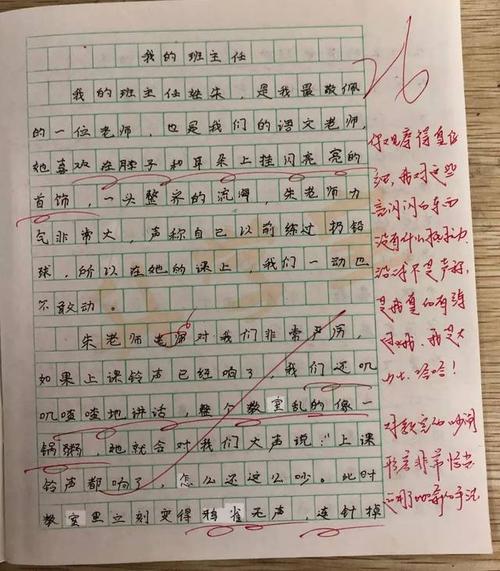 我的班主任
26
我的班主任姓朱，是我最敬佩
的一位老师，也是我们的语文老师，
她喜欢在脖子和耳朵上挂闪亮亮的
首饰，一头整齐的流海，朱老师力
气非常大，声称自己以前练过扔铅
球，所以在她的课上，我们一动也
不敢动。
朱老师老师对我们非常严厉，
如果上课铃声已经响了，我们还叽
叽喳喳地讲话，整个教室乱的像一
锅粥，她就会对我们大声说："上课
铃声都响了，怎么还这么吵。此时
教室里立刻变得鸦雀无声，连针掉
你观察得真仔
细，我对这些
亮闪闪的东西
没有什么抵抗力
没有不是声称，
是我真的有得
过奖，我是大
力士，哈哈！
对教室的吵闹
形容非常恰当
运用了比喻的手法